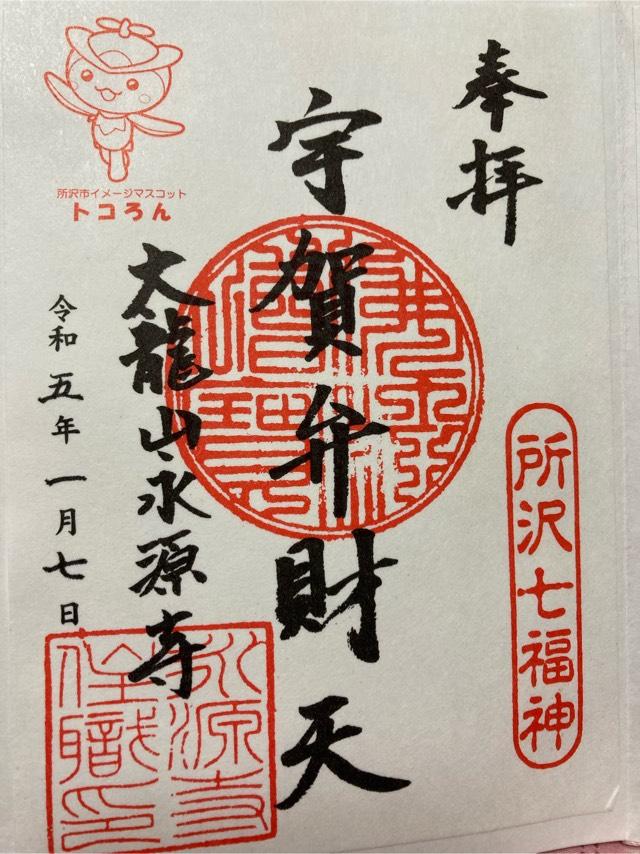 奉拝
所沢七福神
宇賀弁財天
大龍山永源寺
令和五年一月七日
所沢市イメージマスコット
トコろん
永源寺
住職印